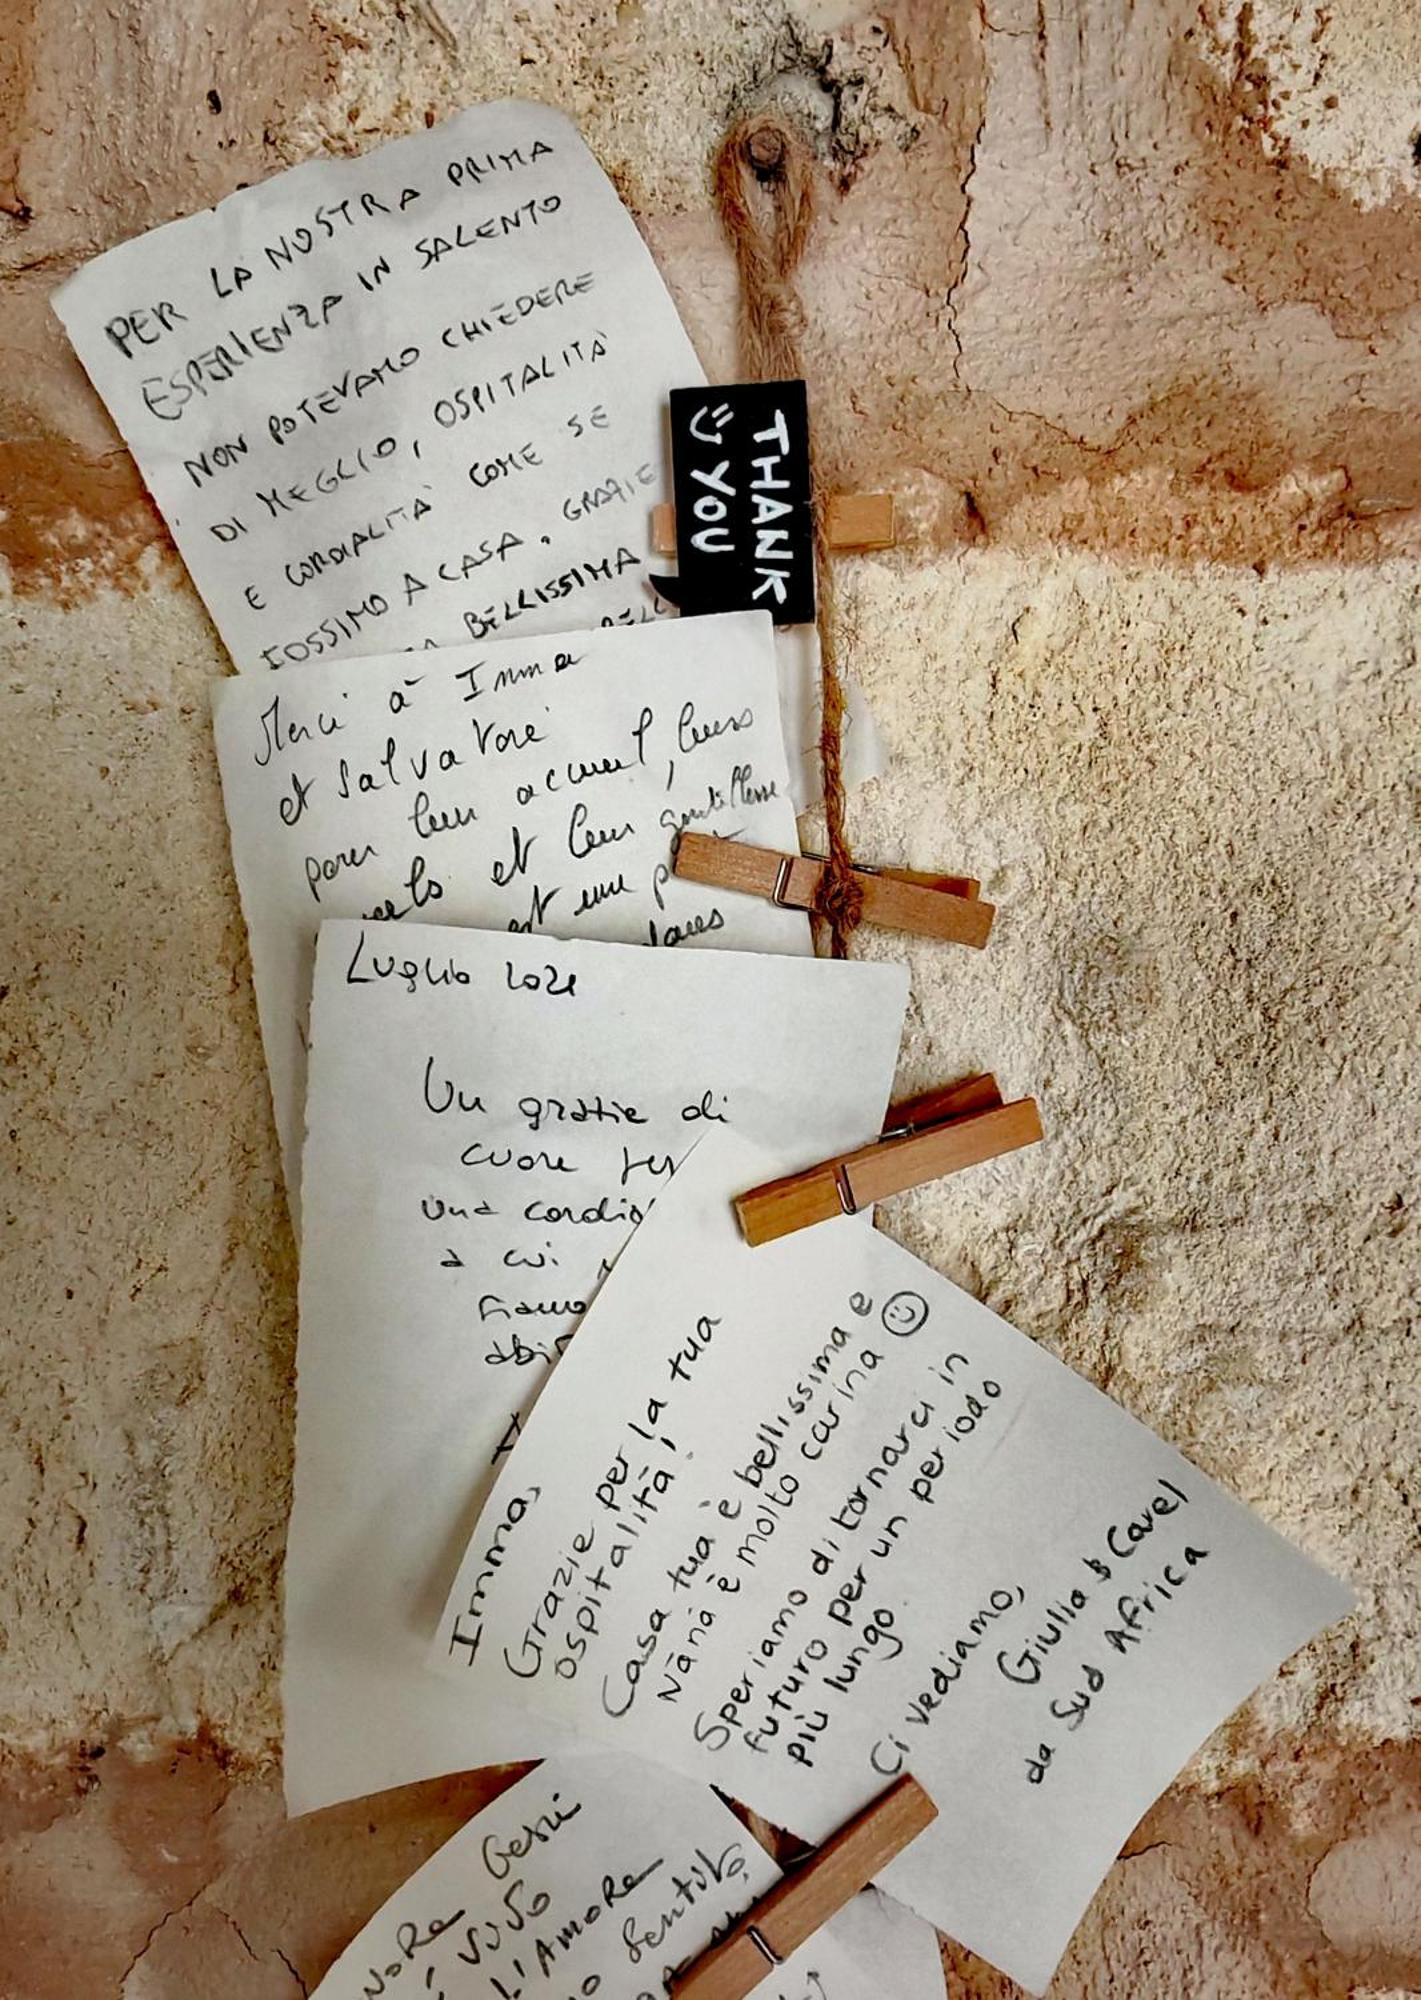 PER LA NOSTRA PRIMA
ESPERIENZA IN SALENTO
NON POTEVAMO CHIEDERE
DI MEGLIO, OSPITALITÀ
E CORDIALITÀ COME SE
FOSSIMO A CASA. GRAZIE
BELLISSIMA
THANK
YOU
Merci à Imma
et Salvatore
pour leur accueil, leurs
et leur gentillesse
est une
dans
Luglio 2021
Un grazie di
cuore per
una cordia
a cui
siamo
abbi
Imma,
Grazie per la tua
ospitalità!
Casa tua è bellissima e
Nanà è molto carina
Speriamo di tornarci in
futuro per un periodo
più lungo.
Ci vediamo,
Giulia & Cavel
da Sud Africa
Gesù
VIVO
L'AMORE
Sentito